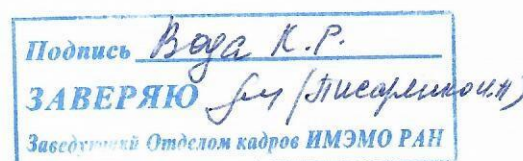 Подпись Вода К.Р.
ЗАВЕРЯЮ
Заведующий Отделом кадров ИМЭМО РАН